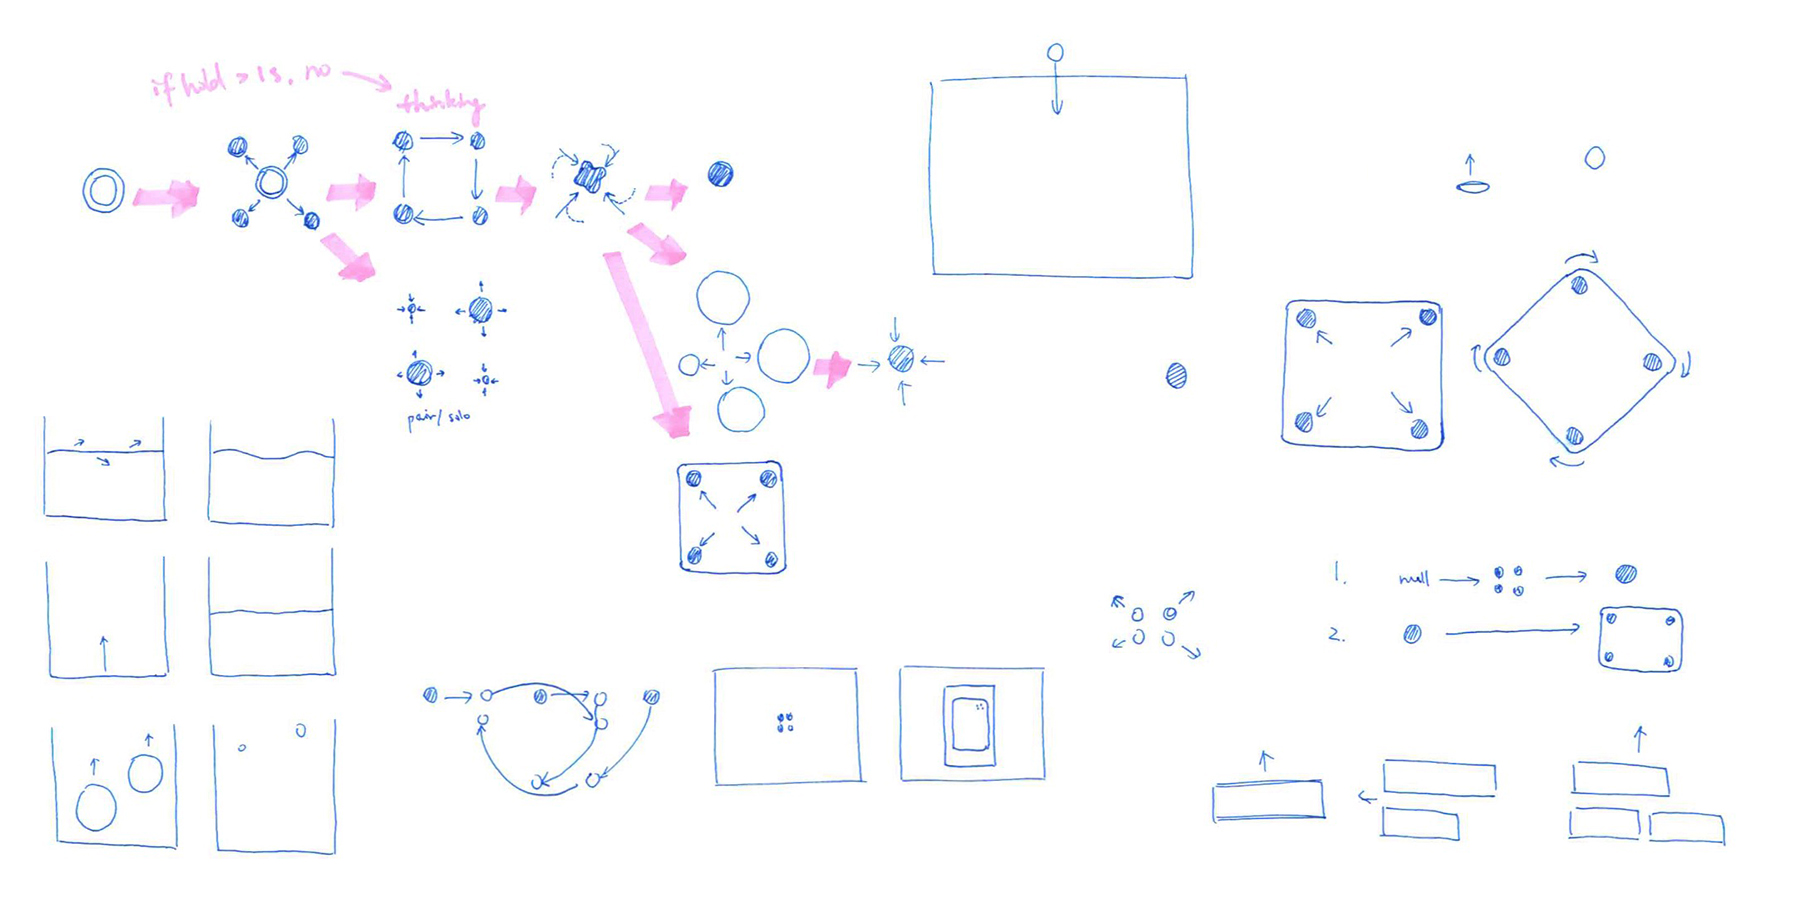 if hold > 1s, no
thinking
pair/ solo
1. null
2.